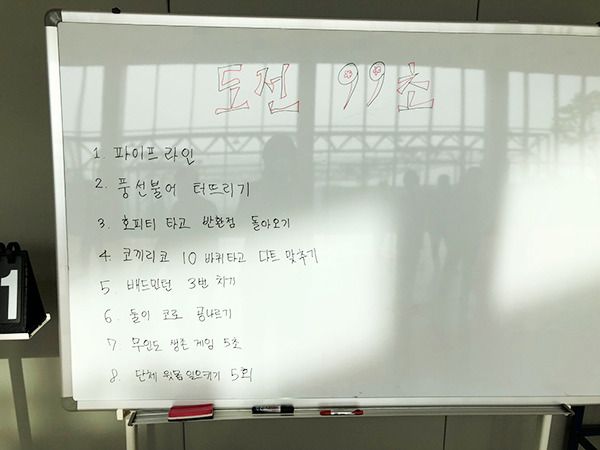 도전 99초
1. 파이프라인
2. 풍선불어 터뜨리기
3. 호피티 타고 반환점 돌아오기
4. 코끼리코 10 바퀴타고 다트 맞추기
5. 배드민턴 3번 치기
6. 둘이 코로 공나르기
7. 무인도 생존 게임 5초
8. 단체 윗몸일으키기 5회
1